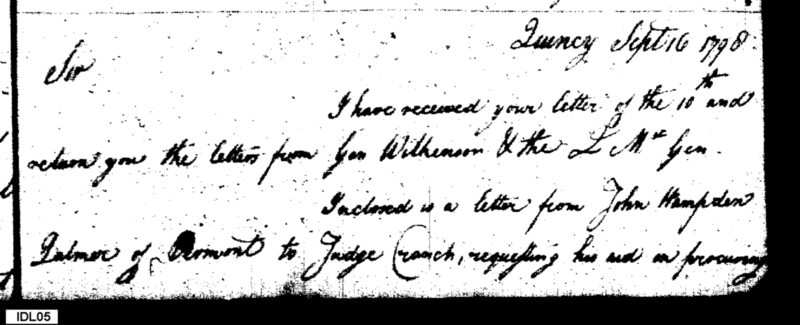 Quincy Sept 16 1798
Sir
I have received your letter of the 10th and
return you the letters from Gen Wilkenson & the Q Mr Gen.
Inclosed is a letter from John Hampden
Palmer of Vermont to Judge Cranch, requesting his aid in procuring
IDL05